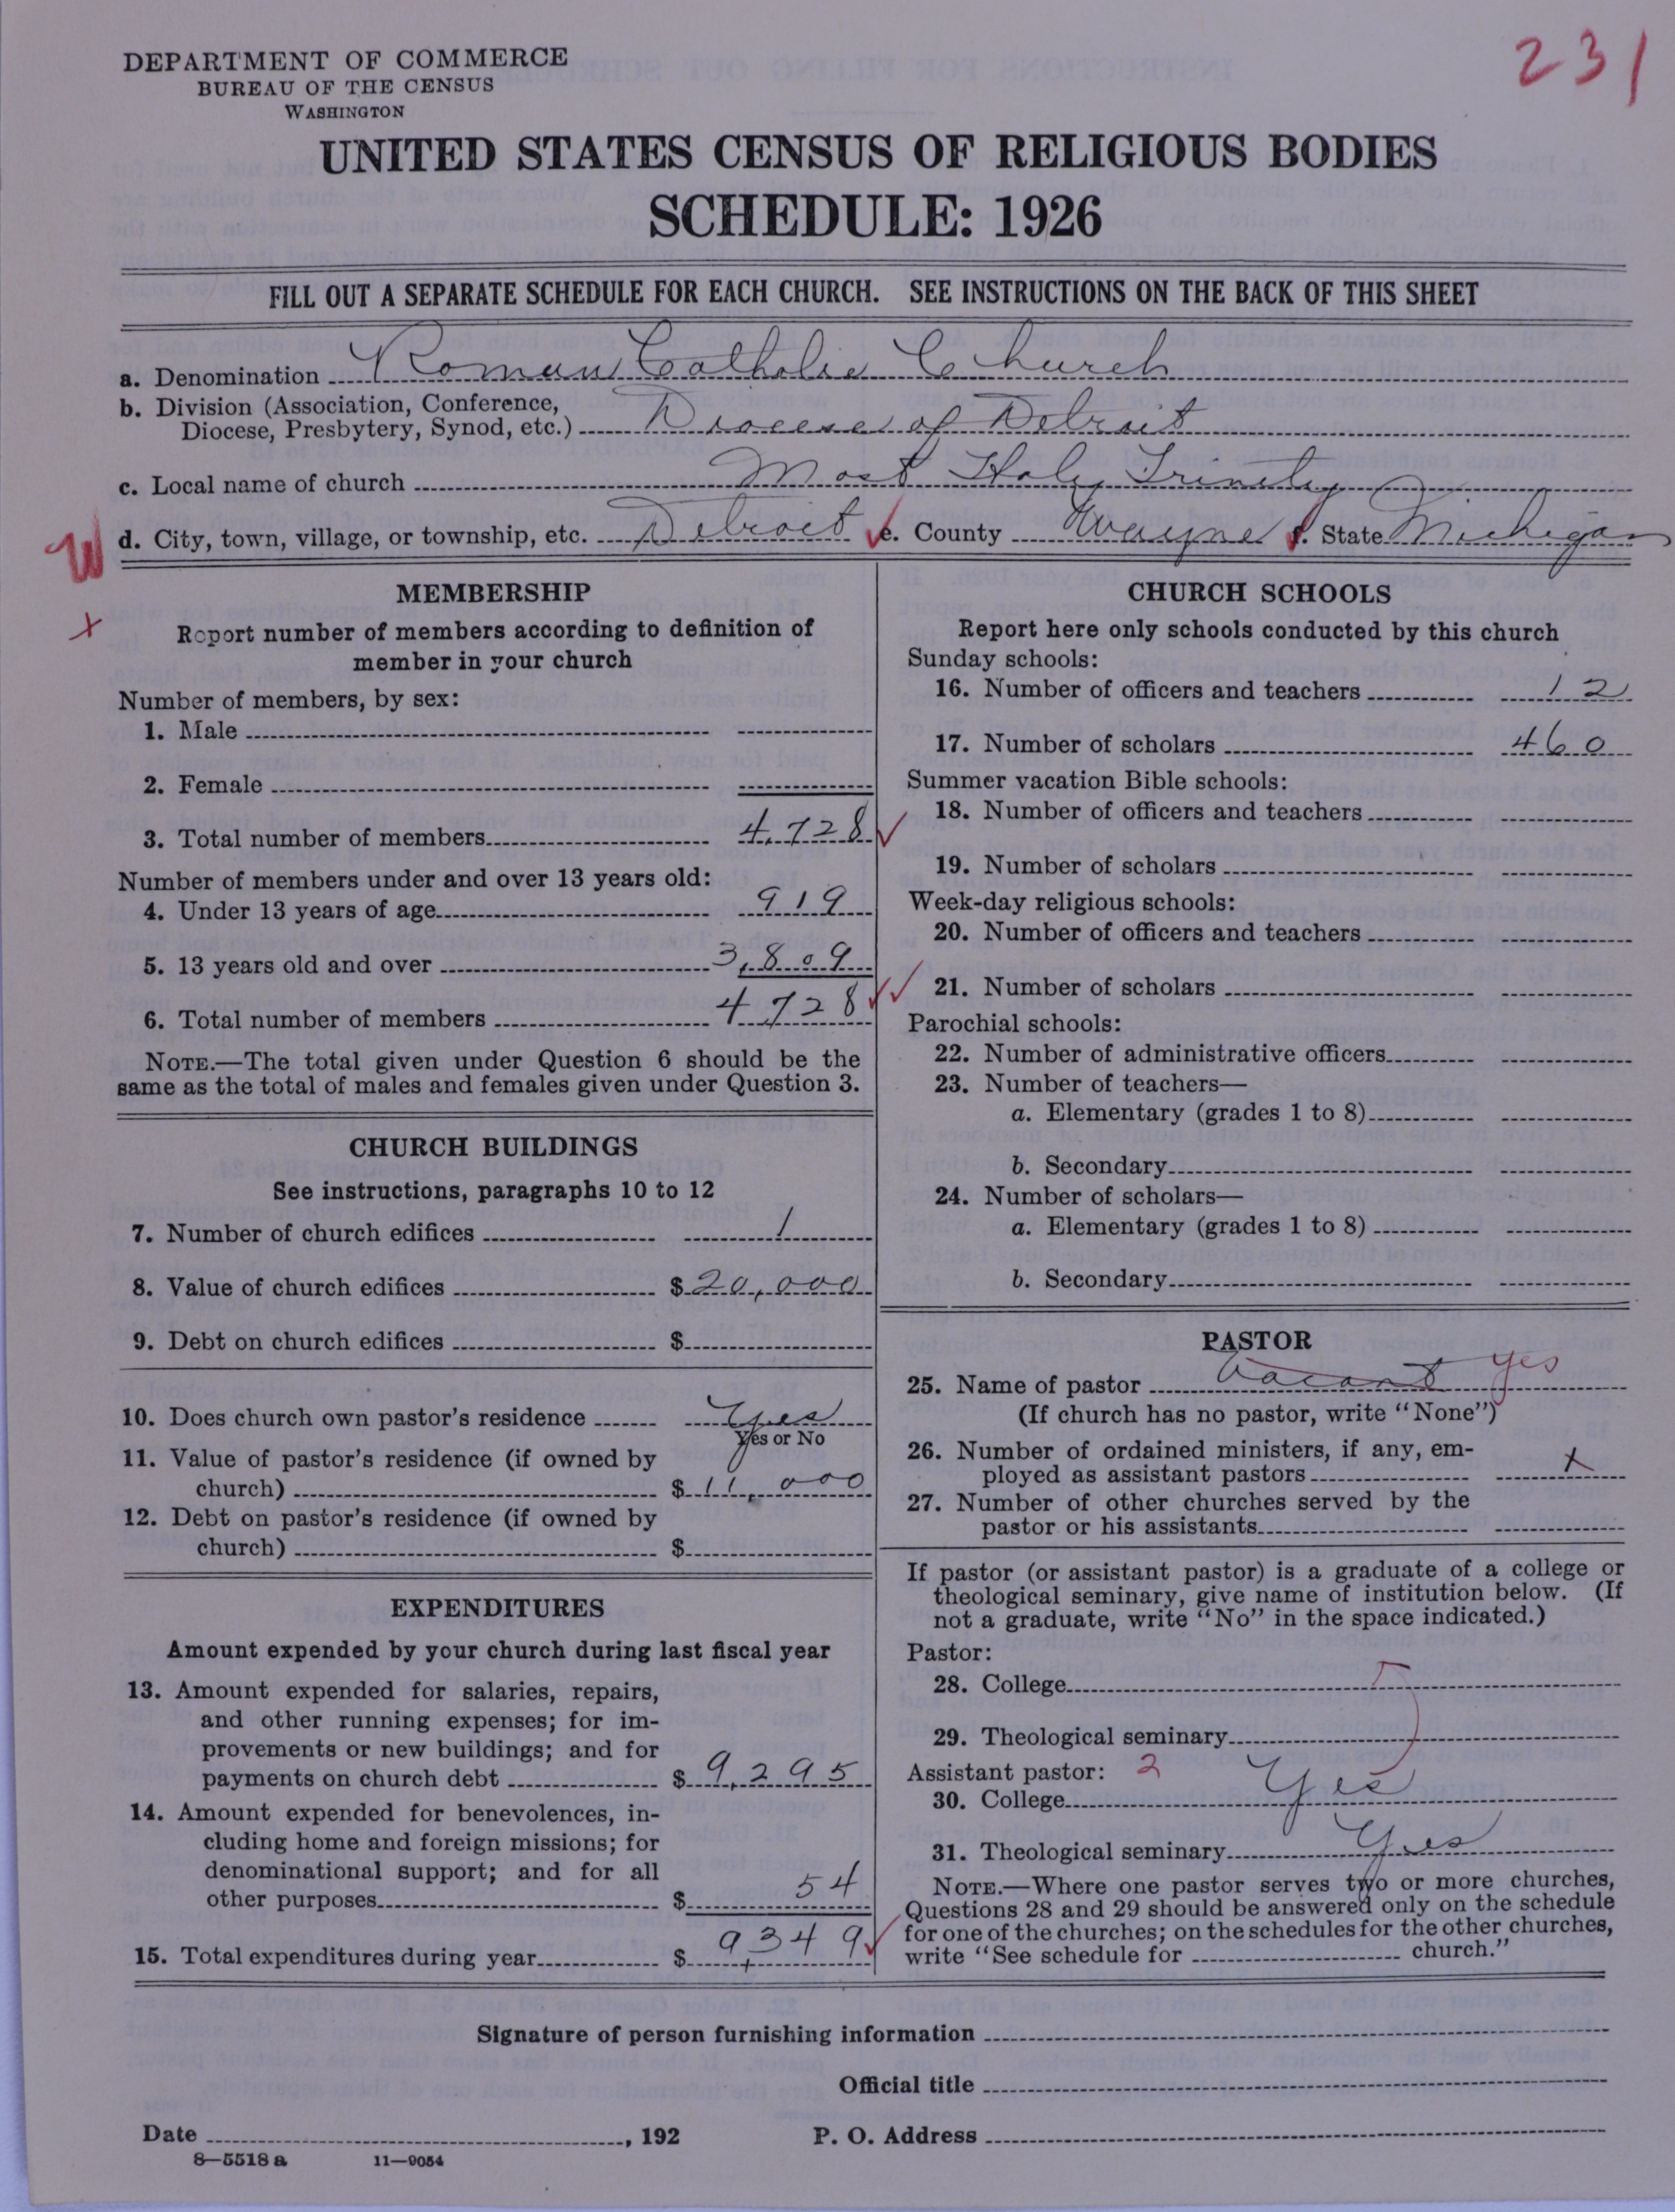 231
DEPARTMENT OF COMMERCE
BUREAU OF THE CENSUS
WASHINGTON
UNITED STATES CENSUS OF RELIGIOUS BODIES
SCHEDULE: 1926
FILL OUT A SEPARATE SCHEDULE FOR EACH CHURCH. SEE INSTRUCTIONS ON THE BACK OF THIS SHEET
a. Denomination Roman Catholic Church
b. Division (Association, Conference,
Diocese, Presbytery, Synod, etc.) Diocese of Detroit
c. Local name of church Most Holy Trinity
W d. City, town, village, or township, etc. Detroit e. County Wayne f. State Michigan
MEMBERSHIP
x Report number of members according to definition of
member in your church
Number of members, by sex:
1. Male
2. Female
3. Total number of members 4,728 ✓
Number of members under and over 13 years old:
4. Under 13 years of age 919
5. 13 years old and over 3,809
6. Total number of members 4,728 ✓✓
NOTE.—The total given under Question 6 should be the
same as the total of males and females given under Question 3.
CHURCH BUILDINGS
See instructions, paragraphs 10 to 12
7. Number of church edifices 1
8. Value of church edifices $ 20,000
9. Debt on church edifices $
10. Does church own pastor's residence Yes
Yes or No
11. Value of pastor's residence (if owned by
church) $ 11,000
12. Debt on pastor's residence (if owned by
church) $
EXPENDITURES
Amount expended by your church during last fiscal year
13. Amount expended for salaries, repairs,
and other running expenses; for im-
provements or new buildings; and for
payments on church debt $ 9,295
14. Amount expended for benevolences, in-
cluding home and foreign missions; for
denominational support; and for all
other purposes $ 54
15. Total expenditures during year $ 9,349 ✓
CHURCH SCHOOLS
Report here only schools conducted by this church
Sunday schools:
16. Number of officers and teachers 12
17. Number of scholars 460
Summer vacation Bible schools:
18. Number of officers and teachers
19. Number of scholars
Week-day religious schools:
20. Number of officers and teachers
21. Number of scholars
Parochial schools:
22. Number of administrative officers
23. Number of teachers—
a. Elementary (grades 1 to 8)
b. Secondary
24. Number of scholars—
a. Elementary (grades 1 to 8)
b. Secondary
PASTOR
25. Name of pastor Vacant yes
(If church has no pastor, write "None")
26. Number of ordained ministers, if any, em-
ployed as assistant pastors x
27. Number of other churches served by the
pastor or his assistants
If pastor (or assistant pastor) is a graduate of a college or
theological seminary, give name of institution below. (If
not a graduate, write "No" in the space indicated.)
Pastor:
28. College
29. Theological seminary
Assistant pastor: 2
30. College Yes
31. Theological seminary Yes
NOTE.—Where one pastor serves two or more churches,
Questions 28 and 29 should be answered only on the schedule
for one of the churches; on the schedules for the other churches,
write "See schedule for church."
Signature of person furnishing information
Official title
Date , 192 P. O. Address
8—5518 a 11—9054